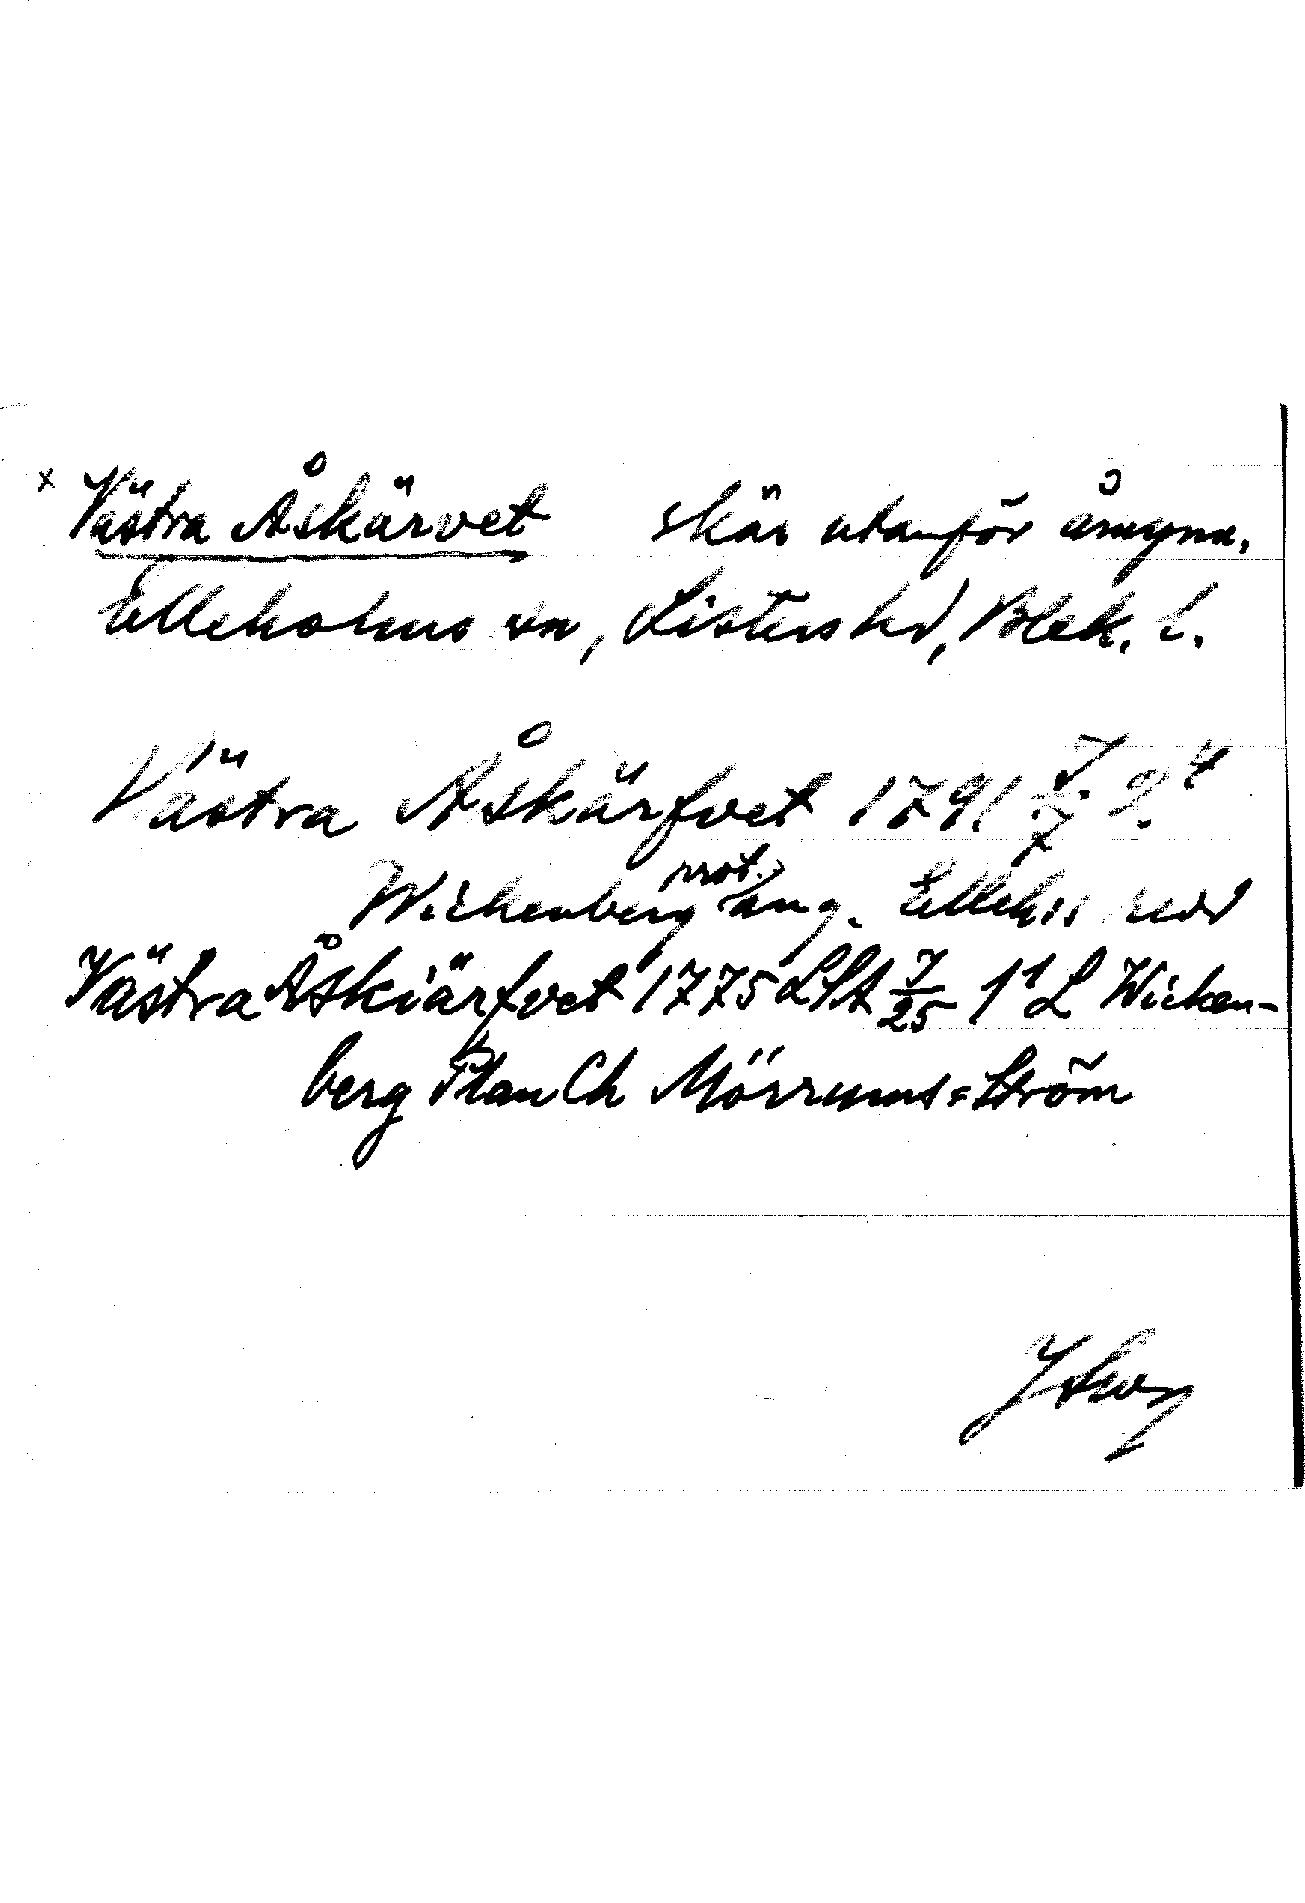 x Västra Åskärvet skär utanför åmynn.
Elleholms sn, Listers hd, Blek. l.
Västra Åskärfvet 1791 7/7 2 4
Wickenberg prot. ang. Ellehs
Västra Åskiärfvet 1775 LSA 7/25 1¹ L Wicken-
berg Plan Ch Mörrums=Ström